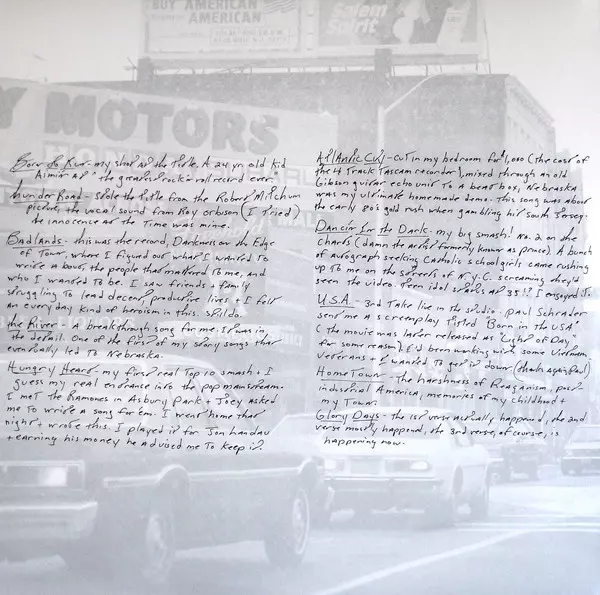 BUY AMERICAN
AMERICAN
Salem
Spirit
Y MOTORS
Born to Run - my shot at the title. A 24 yr old kid
Aimin at "the greatest rock 'n roll record ever."
Thunder Road - stole the title from the Robert Mitchum
picture, the vocal sound from Roy orbison (I Tried)
the innocence at the Time was mine.
Badlands - this was the record, Darkness on the Edge
of Town, where I figured out what I wanted to
write about, the people that mattered to me, and
who I wanted to be. I saw friends + family
struggling to lead decent productive lives + I felt
an everyday kind of heroism in this. Still do.
the River - A breakthrough song for me. It was in
the detail. One of the first of my story songs that
eventually led to Nebraska.
Hungry Heart - my first real Top 10 smash + I
guess my real entrance into the pop mainstream.
I met the Ramones in Asbury Park + Joey asked
me to write a song for em. I went home that
night + wrote this. I played it for Jon Landau
+ earning his money he advised me to keep it.
Atlantic City - cut in my bedroom for $1,000 (the cost of
the 4 Track Tascam recorder), mixed through an old
Gibson guitar echo unit to a beat box, Nebraska
was my ultimate homemade demo. This song was about
the early 80's gold rush when gambling hit south Jersey.
Dancin In the Dark - my big smash! No. 2 on the
charts (damn the artist formerly known as prince). A bunch
of autograph seeking Catholic schoolgirls came rushing
up to me on the streets of N.Y.C. screaming they'd
seen the video. Teen idol status at 35!? I enjoyed it.
U.S.A. - 3rd Take live in the studio. Paul Schrader
sent me a screenplay titled "Born in the USA"
(the movie was later released as "Light of Day"
for some reason). I'd been working with some Vietnam
veterans + I wanted to get it down (thanks again Paul)
HomeTown - the harshness of Reaganism, post-
industrial America, memories of my childhood +
my Town.
Glory Days - the 1st verse actually happened, the 2nd
verse mostly happened, the 3rd verse, of course, is
happening now.